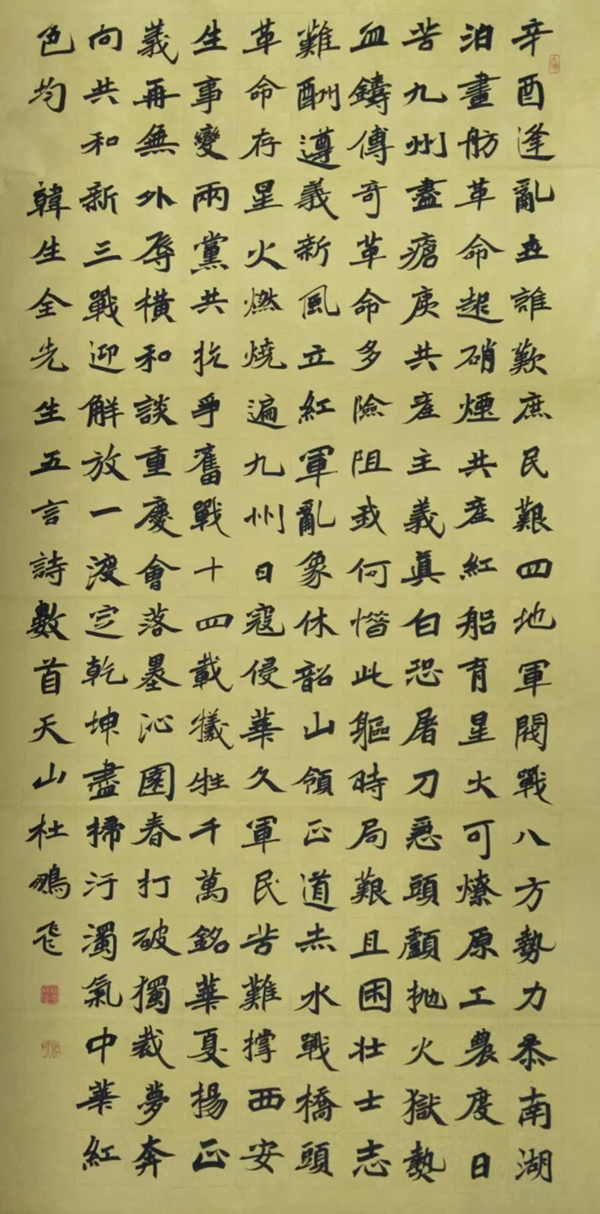 辛酉逢亂世誰歎庶民艱四地軍閥戰八方勢力南湖
泊畫舫革命起硝煙共產紅船育星火可燎原工農度日
苦九州盡瘡庚共產主義真白恐屠刀惡頭顱抛火獄熱
血鑄傳奇革命多險阻我何惜此軀時局艱且困壯士志
難酬遵義新風立紅軍亂象休韶山領正道赤水戰橋頭
革命存星火燃燒遍九州日寇侵華久軍民苦難撐西安
生事變兩黨共抗爭奮戰十四載犧牲千萬銘華夏揚正
義再無外辱橫和談重慶會落墨沁園春打破獨裁夢奔
向共和新三戰迎解放一渡定乾坤盡掃汙濁氣中華紅
色均 韓生全先生五言詩數首天山杜鵬飛